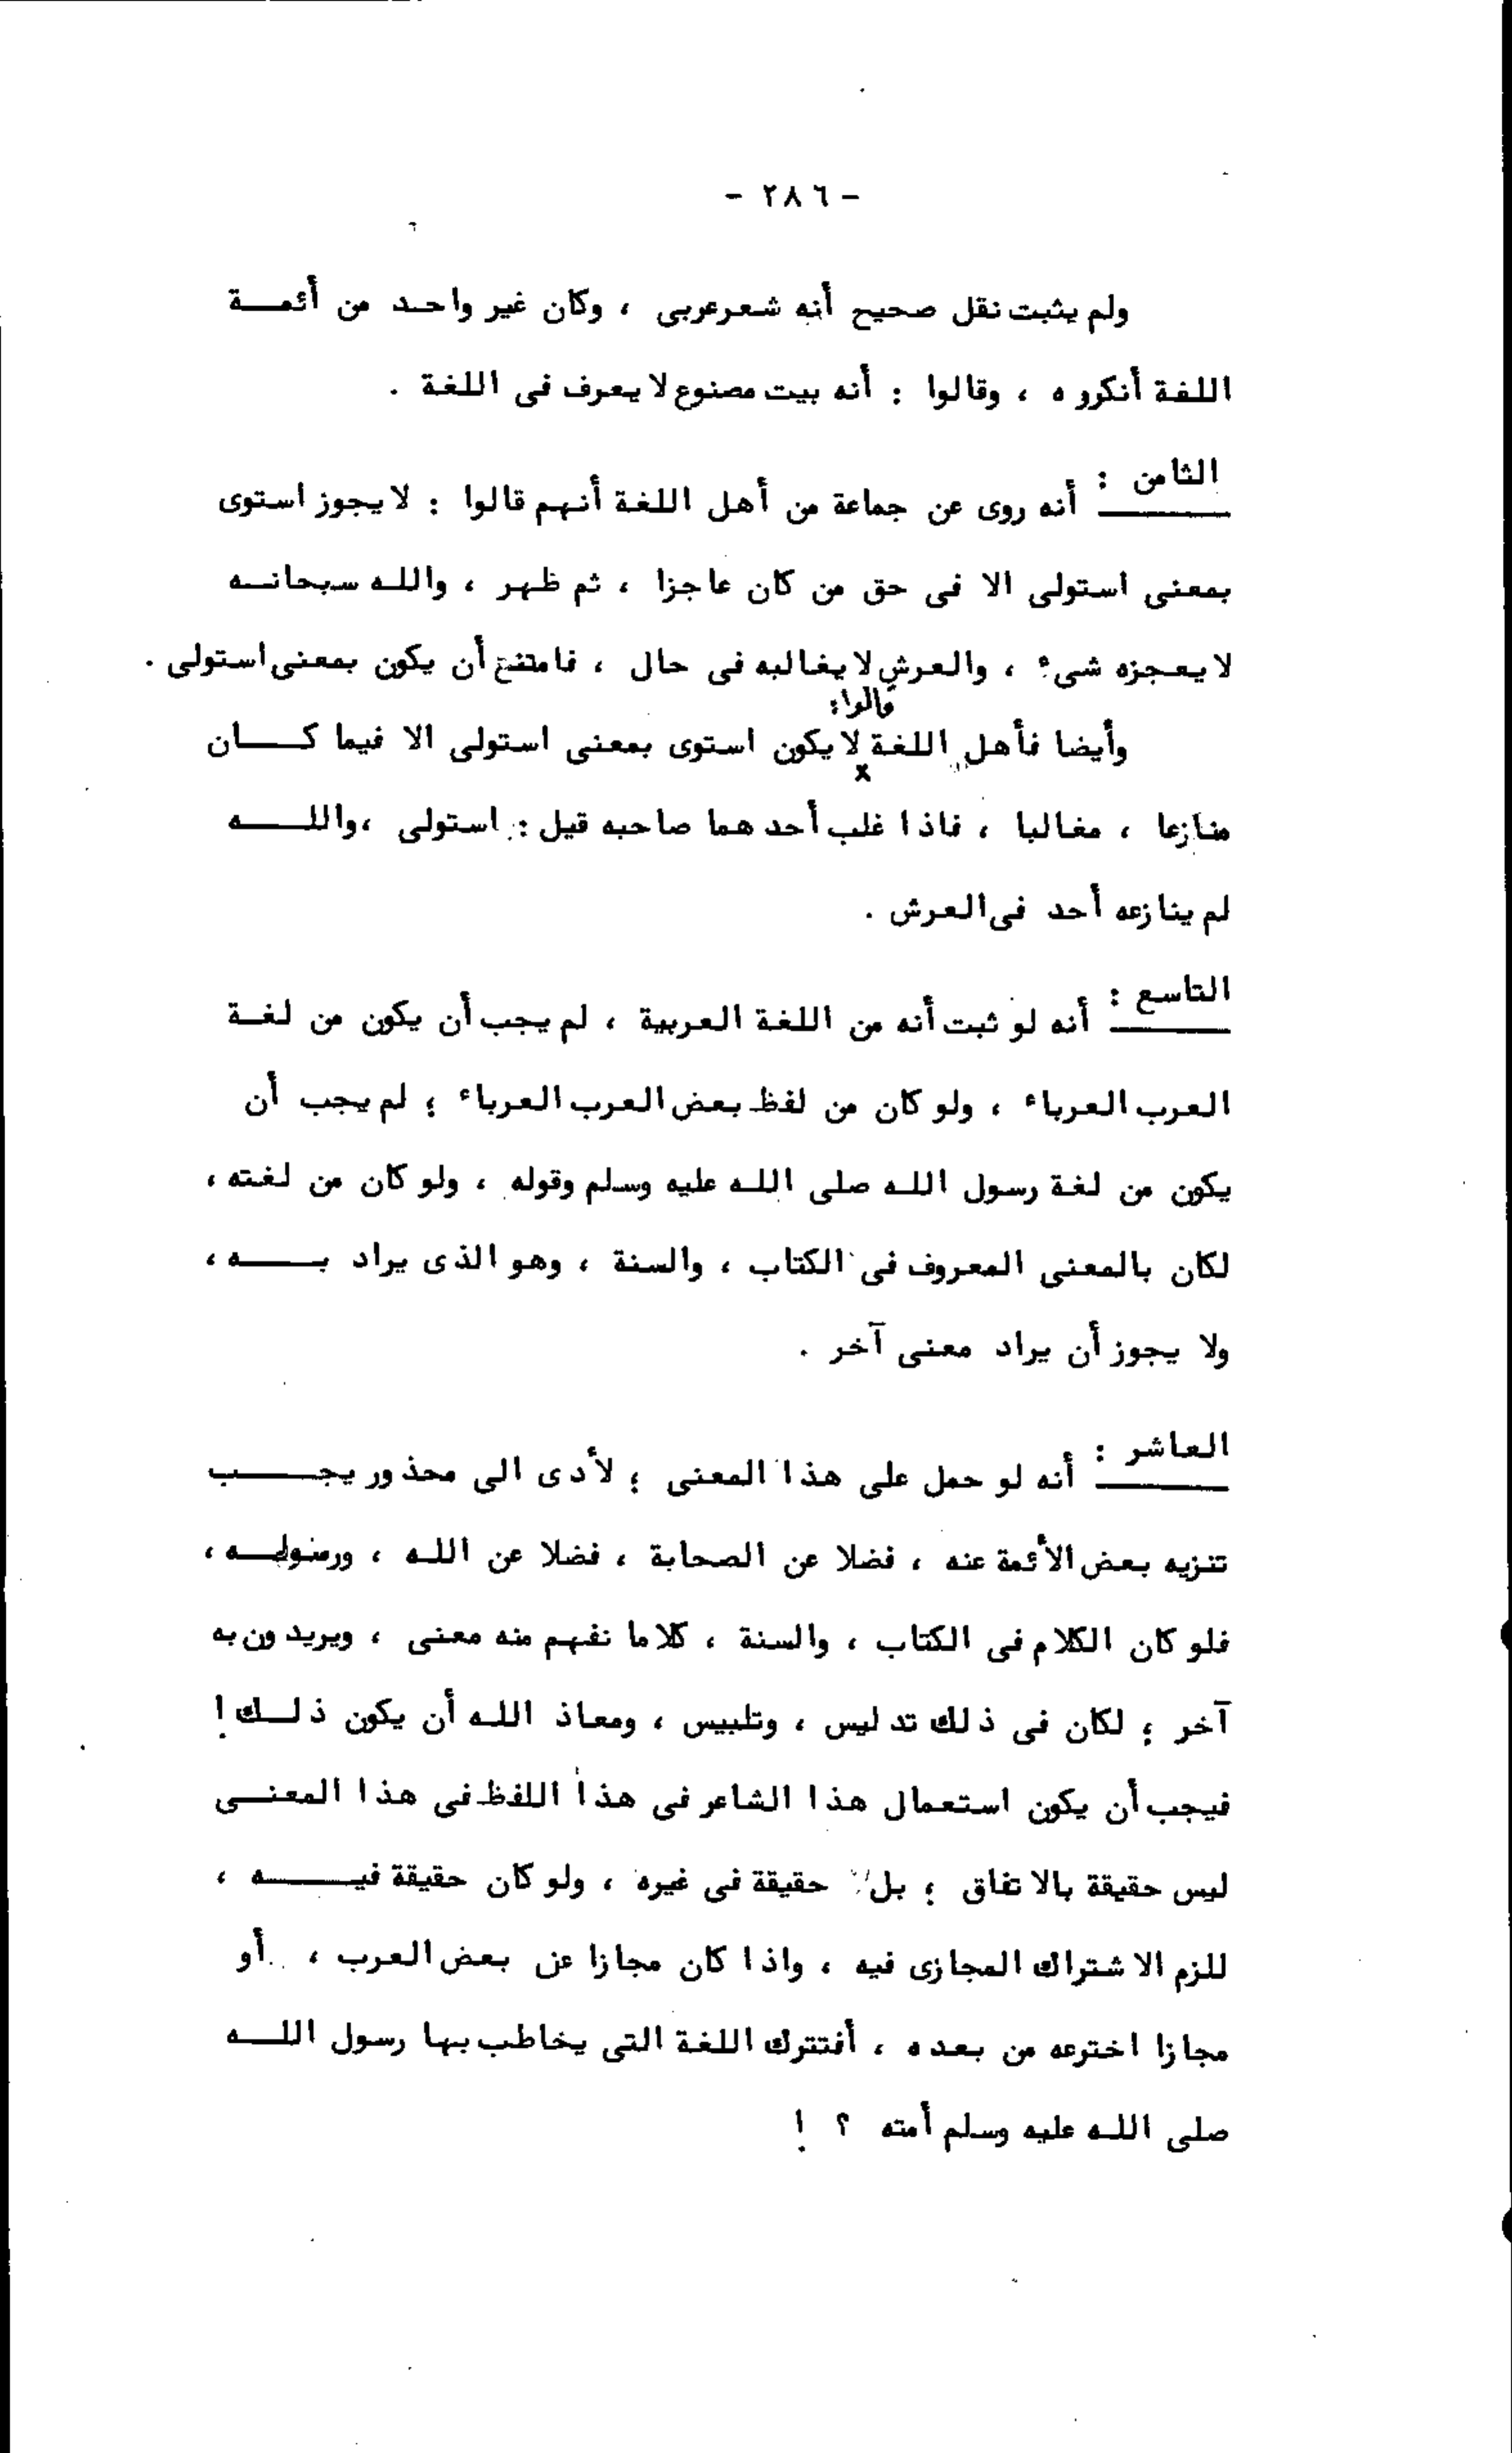 - ٢٨٦ -
ولم يثبت نقل صحيح أنه شعر عربى ، وكان غير واحد من أئمة
اللغة أنكروه ، وقالوا : أنه بيت مصنوع لا يعرف فى اللغة .
الثامن : أنه روى عن جماعة من أهل اللغة أنهم قالوا : لا يجوز استوى
بمعنى استولى الا فى حق من كان عاجزا ، ثم ظهر ، والله سبحانه
لا يعجزه شىء ، والعرش لا يغالبه فى حال ، فامتنع أن يكون بمعنى استولى .
قالوا :
وأيضا فأهل اللغة لا يكون استوى بمعنى استولى الا فيما كان
x
منازعا ، مغالبا ، فاذا غلب أحدهما صاحبه قيل : استولى ، والله
لم ينازعه أحد فى العرش .
التاسع : أنه لو ثبت أنه من اللغة العربية ، لم يجب أن يكون من لغة
العرب العرباء ، ولو كان من لفظ بعض العرب العرباء ؛ لم يجب أن
يكون من لغة رسول الله صلى الله عليه وسلم وقوله ، ولو كان من لغته ،
لكان بالمعنى المعروف فى الكتاب ، والسنة ، وهو الذى يراد به ،
ولا يجوز أن يراد معنى آخر .
العاشر : أنه لو حمل على هذا المعنى ؛ لأدى الى محذور يجب
تنزيه بعض الأئمة عنه ، فضلا عن الصحابة ، فضلا عن الله ، ورسوله ،
فلو كان الكلام فى الكتاب ، والسنة ، كلاما نفهم منه معنى ، ويريدون به
آخر ؛ لكان فى ذلك تدليس ، وتلبيس ، ومعاذ الله أن يكون ذلك !
فيجب أن يكون استعمال هذا الشاعر فى هذا اللفظ فى هذا المعنى
ليس حقيقة بالاتفاق ؛ بل حقيقة فى غيره ، ولو كان حقيقة فيه ،
للزم الاشتراك المجازى فيه ، واذا كان مجازا عن بعض العرب ، أو
مجازا اخترعه من بعده ، أفتترك اللغة التى يخاطب بها رسول الله
صلى الله عليه وسلم أمته ؟ !